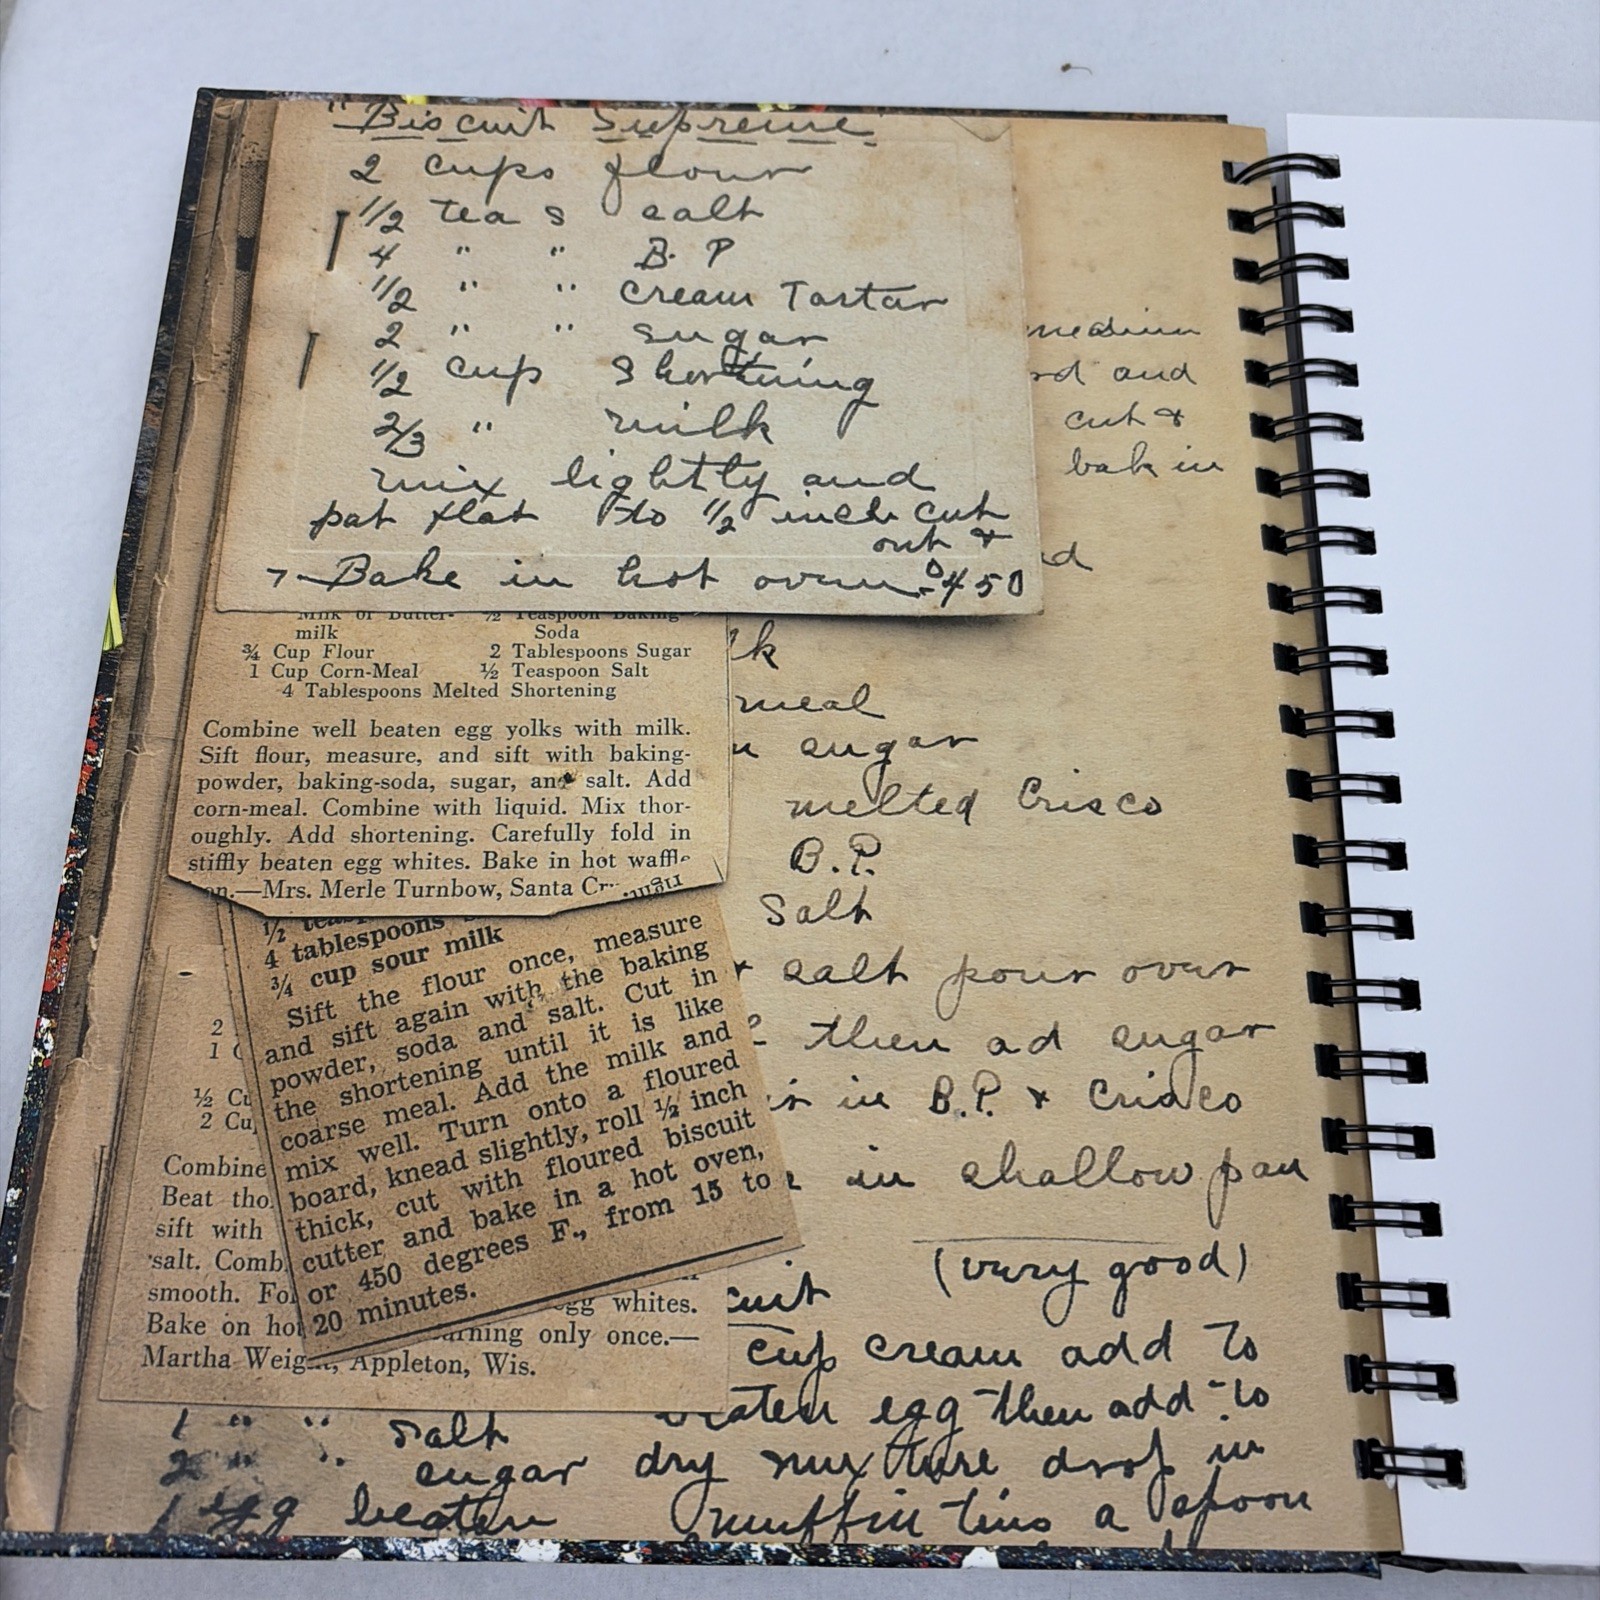 "Biscuit Supreme"
2 cups flour
1/2 tea s salt
4 " " B. P
1/2 " " cream Tartar
2 " " sugar
1/2 cup Shortning
2/3 " milk
mix lightly and
pat flat to 1/2 inch cut
out &
Bake in hot oven 450
medium
and
cut &
bak in
Milk or Butter- ½ Teaspoon Baking
milk Soda
¾ Cup Flour 2 Tablespoons Sugar
1 Cup Corn-Meal ½ Teaspoon Salt
4 Tablespoons Melted Shortening
Combine well beaten egg yolks with milk.
Sift flour, measure, and sift with baking-
powder, baking-soda, sugar, and salt. Add
corn-meal. Combine with liquid. Mix thor-
oughly. Add shortening. Carefully fold in
stiffly beaten egg whites. Bake in hot waffle
—Mrs. Merle Turnbow, Santa
½
4 tablespoons
¾ cup sour milk
Sift the flour once, measure
and sift again with the baking
powder, soda and salt. Cut in
the shortening until it is like
coarse meal. Add the milk and
mix well. Turn onto a floured
board, knead slightly, roll ½ inch
thick, cut with floured biscuit
cutter and bake in a hot oven,
or 450 degrees F., from 15 to
20 minutes.
2
1
½
2
Combine
Beat
sift with
salt.
smooth.
Bake on
egg whites.
only once.—
Martha Appleton, Wis.
meal
sugar
melted Crisco
B.P.
Salt
salt pour over
then ad sugar
in B.P. & Crisco
in shallow pan
(very good)
cup cream add to
1 " " salt beaten egg then add to
2 " " sugar dry mixture drop in
1 egg beaten muffin tins a spoon